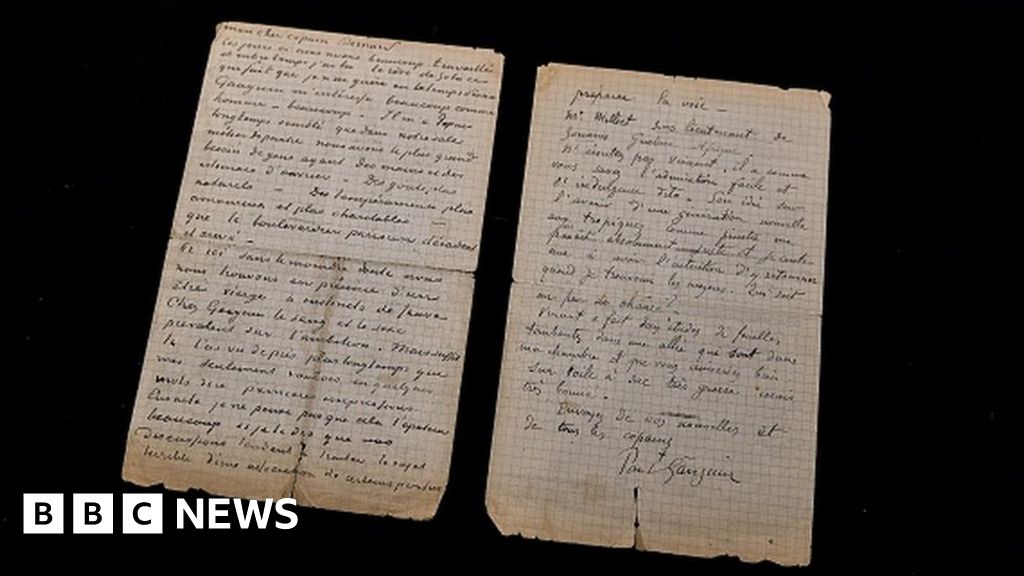 mon cher copain Bernard
Ces jours ci nous avons beaucoup travaillés
et entre temps j'ai lu le rêve de Zola ce
qui fait que je n'ai guère eu le temps d'écrire
Gauguin m'intéresse beaucoup comme
homme – beaucoup – Il m'a depuis
longtemps semblé que dans notre sale
métier de peintre nous avons le plus grand
besoin de gens ayant des mains et des
estomacs d'ouvrier – Des goûts plus
naturels – Des tempéraments plus
amoureux et plus charitables
que le boulevardier parisien décadent
et crevé –
Or ici sans le moindre doute nous
nous trouvons en présence d'un
être vierge à instincts de fauve
Chez Gauguin le sang et le sexe
prevalent sur l'ambition. Mais suffit
tu l'as vu de près plus longtemps que
moi seulement voulais en quelques
mots dire premières impressions
Ensuite je ne pense pas que cela t'épatera
beaucoup si je te dis que nos
Discussions tendent à traiter le sujet
terrible d'une association de certains peintres
préparer la voie –
Mr Milliet sous lieutenant de
Zouaves Guelma Afrique
N'écoutez pas Vincent, il a comme
vous savez l'admiration facile et
l'indulgence dito – Son idée sur
l'avenir d'une génération nouvelle
aux tropiques comme peintre me
paraît absolument juste et je continue
à avoir l'intention d'y retourner
quand je trouverai les moyens. Qui sait
un peu de chance?
Vincent a fait deux études de feuilles
tombantes dans une allée qui sont dans
ma chambre et que vous aimeriez bien
sur toile à sac très grosse, mais
très bonne –
Envoyez de vos nouvelles et
de tous les copains
Paul Gauguin
BBC NEWS